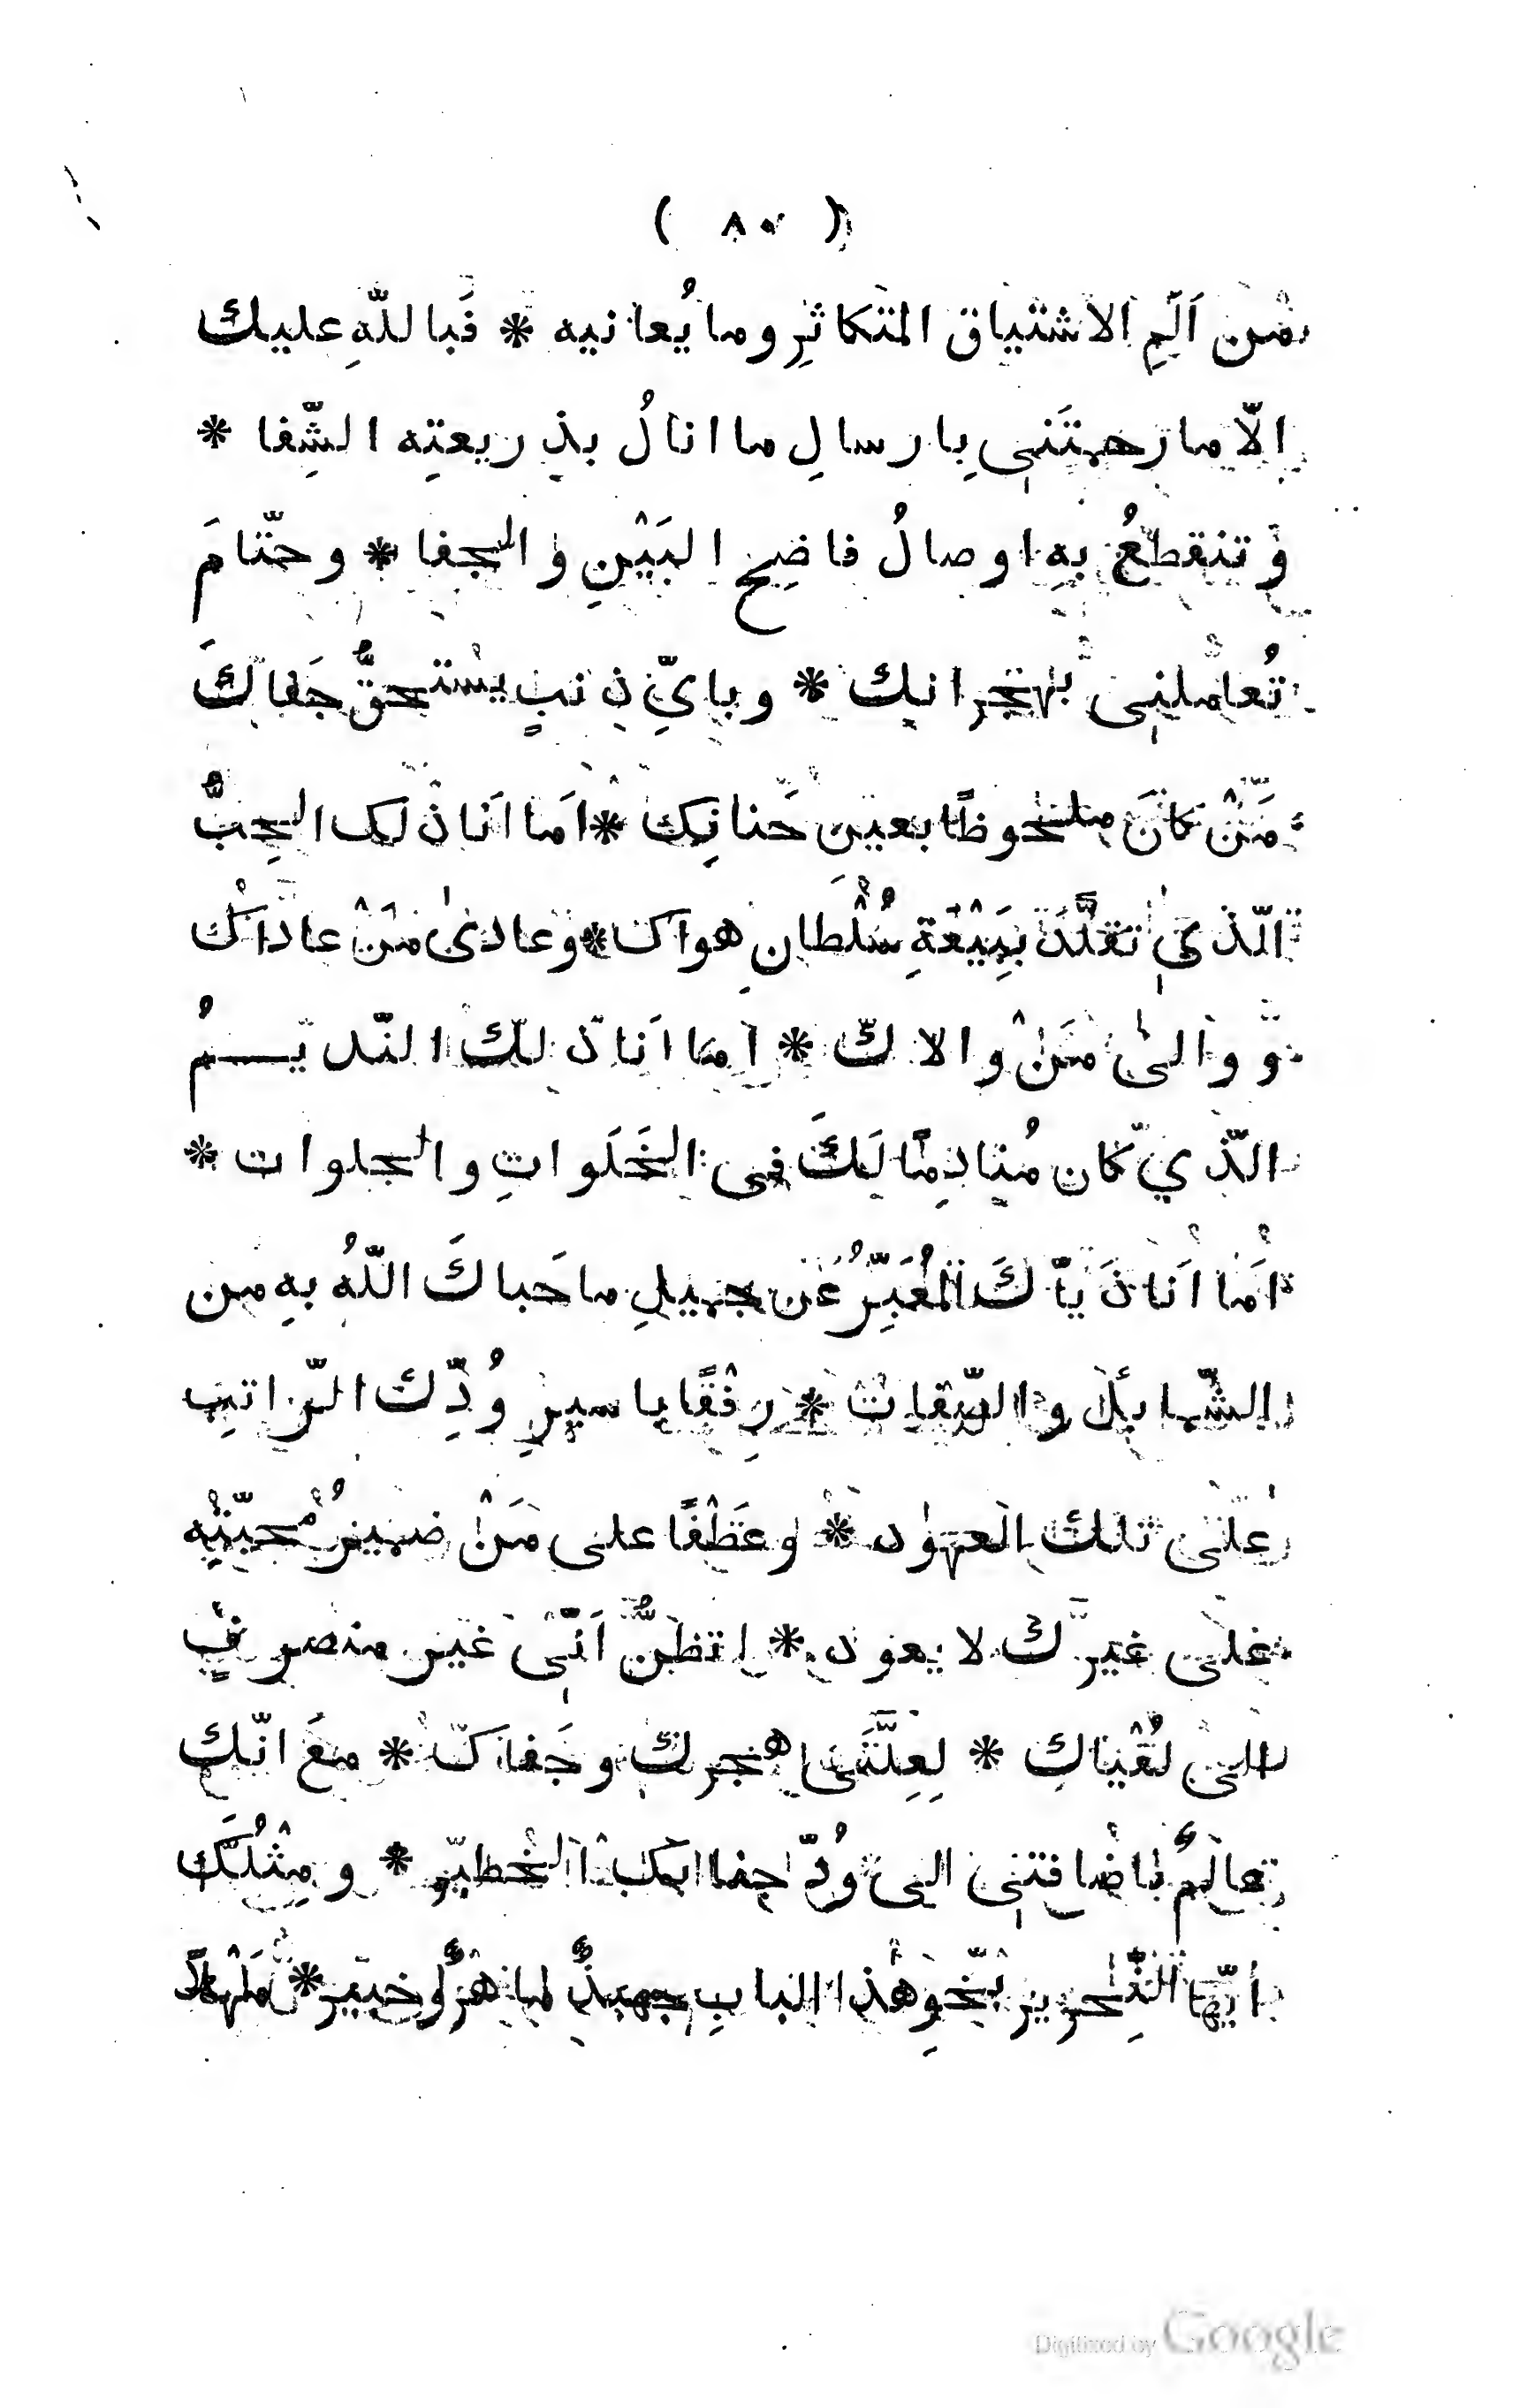 ( ٨٠ )
من اَلَمِ الاشتياق المتكاثرِ وما يُعانيه * فَباللّٰهِ عليك
الّا ما رحمتَني بِارسالِ ما انالُ بذريعتِه الشِّفا *
وتنقطعُ بهِ اوصالُ فاضِح البَيْنِ والجفا * وحتّامَ
تُعاملني بهجرانك * وبايِّ ذنبٍ يستحقُّ جَفاكَ
مَنْ كانَ ملحوظًا بعين حَنانِك * اَما اَنا ذلك الحِبُّ
الّذي تقلَّدَ بِبَيْعَةِ سُلْطانِ هواك * وعادىٰ مَنْ عاداك
ووالىٰ مَنْ والاك * اما اَنا ذلك النّديـــمُ
الّذي كان مُنادِمًا لَكَ في الخَلَواتِ والجلوات *
اَما اَنا ذَيّاكَ المُعَبِّرُ عَن جميلِ ما حَباكَ اللّٰهُ بهِ من
الشّمايل والصّفات * رِفْقًا باسيرِ وُدِّك الرّاتبِ
علىٰ تلك العهود * وعَطْفًا على مَنْ ضميرُ مُحبّتِه
على غيرك لا يعود * اتظنُّ اَنّي غير منصرفٍ
الىٰ لُقْياكِ * لِعِلَّتَي هجرك وجَفاكَ * معَ انّك
عالمٌ باضافتي الى وُدّ جنابك الخطير * ومِثْلُكَ
ايّها النِّحرير بنحوِ هٰذا البابِ جهبذٌ ماهرٌ وخبير * مَهْلًا
Digitized by Google